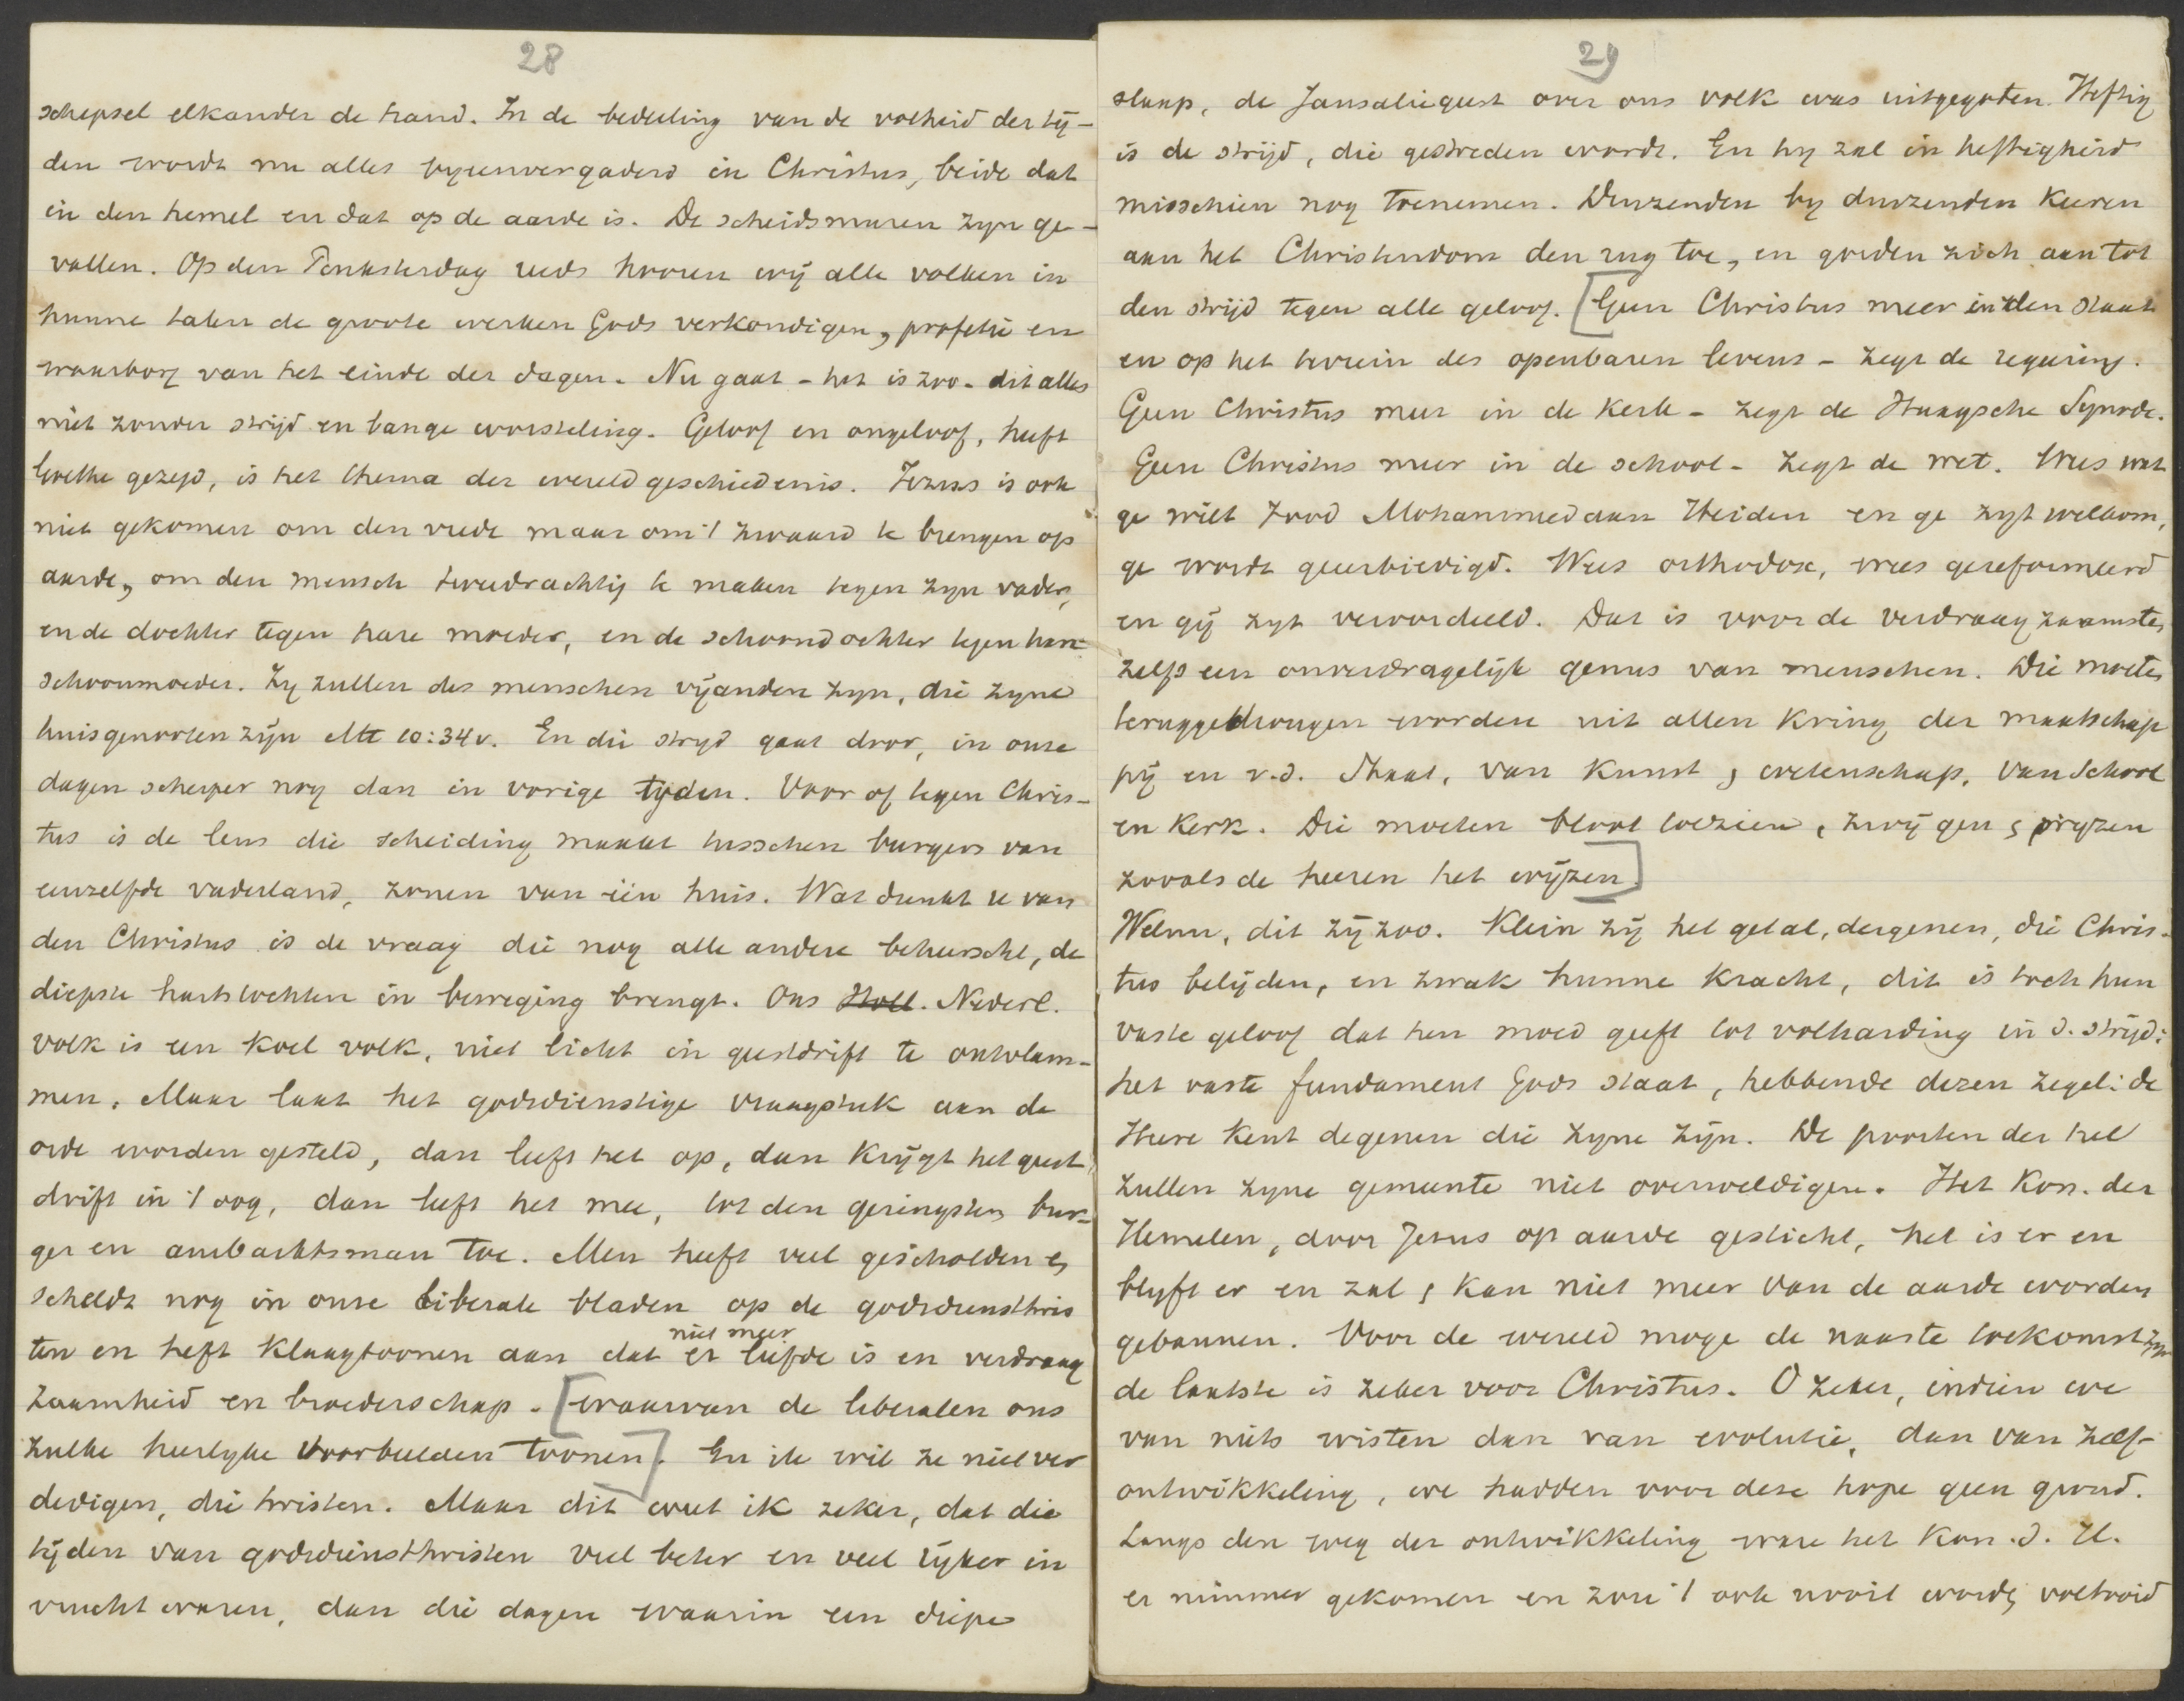 28
schepsel elkander de hand. In de bedeeling van de volheid der tij-
den wordt nu alles byeenvergaderd in Christus, beide dat
in den hemel en dat op de aarde is. De scheidsmuren zyn ge-
vallen. Op den Pinksterdag reeds hooren wij alle volken in
hunne talen de groote werken Gods verkondigen, profetie en
waarborg van het einde der dagen. Nu gaat - het is zoo - dit alles
niet zonder strijd en bange worsteling. Geloof en ongeloof, heeft
Goethe gezegd, is het thema der wereldgeschiedenis. Jezus is ook
niet gekomen om den vrede maar om 't zwaard te brengen op
aarde, om den mensch tweedrachtig te maken tegen zyn vader,
en de dochter tegen hare moeder, en de schoondochter tegen hare
schoonmoeder. Zy zullen des menschen vijanden zyn, die zyne
huisgenooten zijn Mt 10:34v. En die stryd gaat door, in onze
dagen scherper nog dan in vorige tyden. Voor of tegen Chris-
tus is de leus die scheiding maakt tusschen burgers van
eenzelfde vaderland, zonen van één huis. Wat dunkt u van
den Christus is de vraag die nog alle andere beheerscht, de
diepste hartstochten in beweging brengt. Ons Holl. Nederl.
volk is een koel volk, niet licht in geestdrift te ontvlam-
men. Maar laat het godsdienstige vraagstuk aan de
orde worden gesteld, dan leeft het op, dan krijgt het geest
drift in 't oog, dan leeft het mee, tot den geringsten bur-
ger en ambachtsman toe. Men heeft veel gescholden en
scheldt nog in onze liberale bladen op de godsdiensttwis
ten en heft klaagtoonen aan dat er niet meer liefde is en verdraag
zaamheid en broederschap. [waarvan de liberalen ons
zulke heerlyke voorbeelden toonen]. En ik wil ze niet ver
dedigen, die twisten. Maar dit weet ik zeker, dat die
tijden van godsdiensttwisten veel beter en veel rijker in
vrucht waren, dan die dagen waarin een diepe
29
slaap, de Jansaliegeest over ons volk was uitgegoten. Heftig
is de strijd, die gestreden wordt. En hy zal in heftigheid
misschien nog toenemen. Duizenden by duizenden keeren
aan het Christendom den rug toe, en gorden zich aan tot
den strijd tegen alle geloof. [Geen Christus meer in den staat
en op het terrein des openbaren levens - zegt de regeering.
Geen Christus meer in de kerk - zegt de Haagsche Synode.
Geen Christus meer in de school - zegt de wet. Wees wat
ge wilt Jood Mohammedaan Heiden en ge zyt welkom,
ge wordt geeerbiedigd. Wees orthodox, wees gereformeerd
en gij zyt veroordeeld. Dat is voor de verdraagzaamsten
zelfs een onverdragelijk genus van menschen. Die moeten
teruggedrongen worden uit allen kring der maatschap
pij en v.d. Staat, van kunst en wetenschap, van School
en Kerk. Die moeten bloot toezien, zwijgen en pryzen
zooals de heeren het wijzen]
Welnu, dit zij zoo. Klein zij het getal, dergenen, die Chris-
tus belijden, en zwak hunne kracht, dit is toch hun
vaste geloof dat hen moed geeft tot volharding in d. strijd:
het vaste fundament Gods staat, hebbende dezen zegel: de
Heere kent degenen die zyne zijn. De poorten der hel
zullen zyne gemeente niet overweldigen. Het Kon. der
Hemelen, door Jezus op aarde gesticht, het is er en
blyft er en zal en kan niet meer van de aarde worden
gebannen. Voor de wereld moge de naaste toekomst zyn
de laatste is zeker voor Christus. O zeker, indien we
van niets wisten dan van evolutie, dan van zelf-
ontwikkeling, we hadden voor deze hope geen grond.
Langs den weg der ontwikkeling ware het Kon. d. H.
er nimmer gekomen en zou 't ook nooit worden voltooid